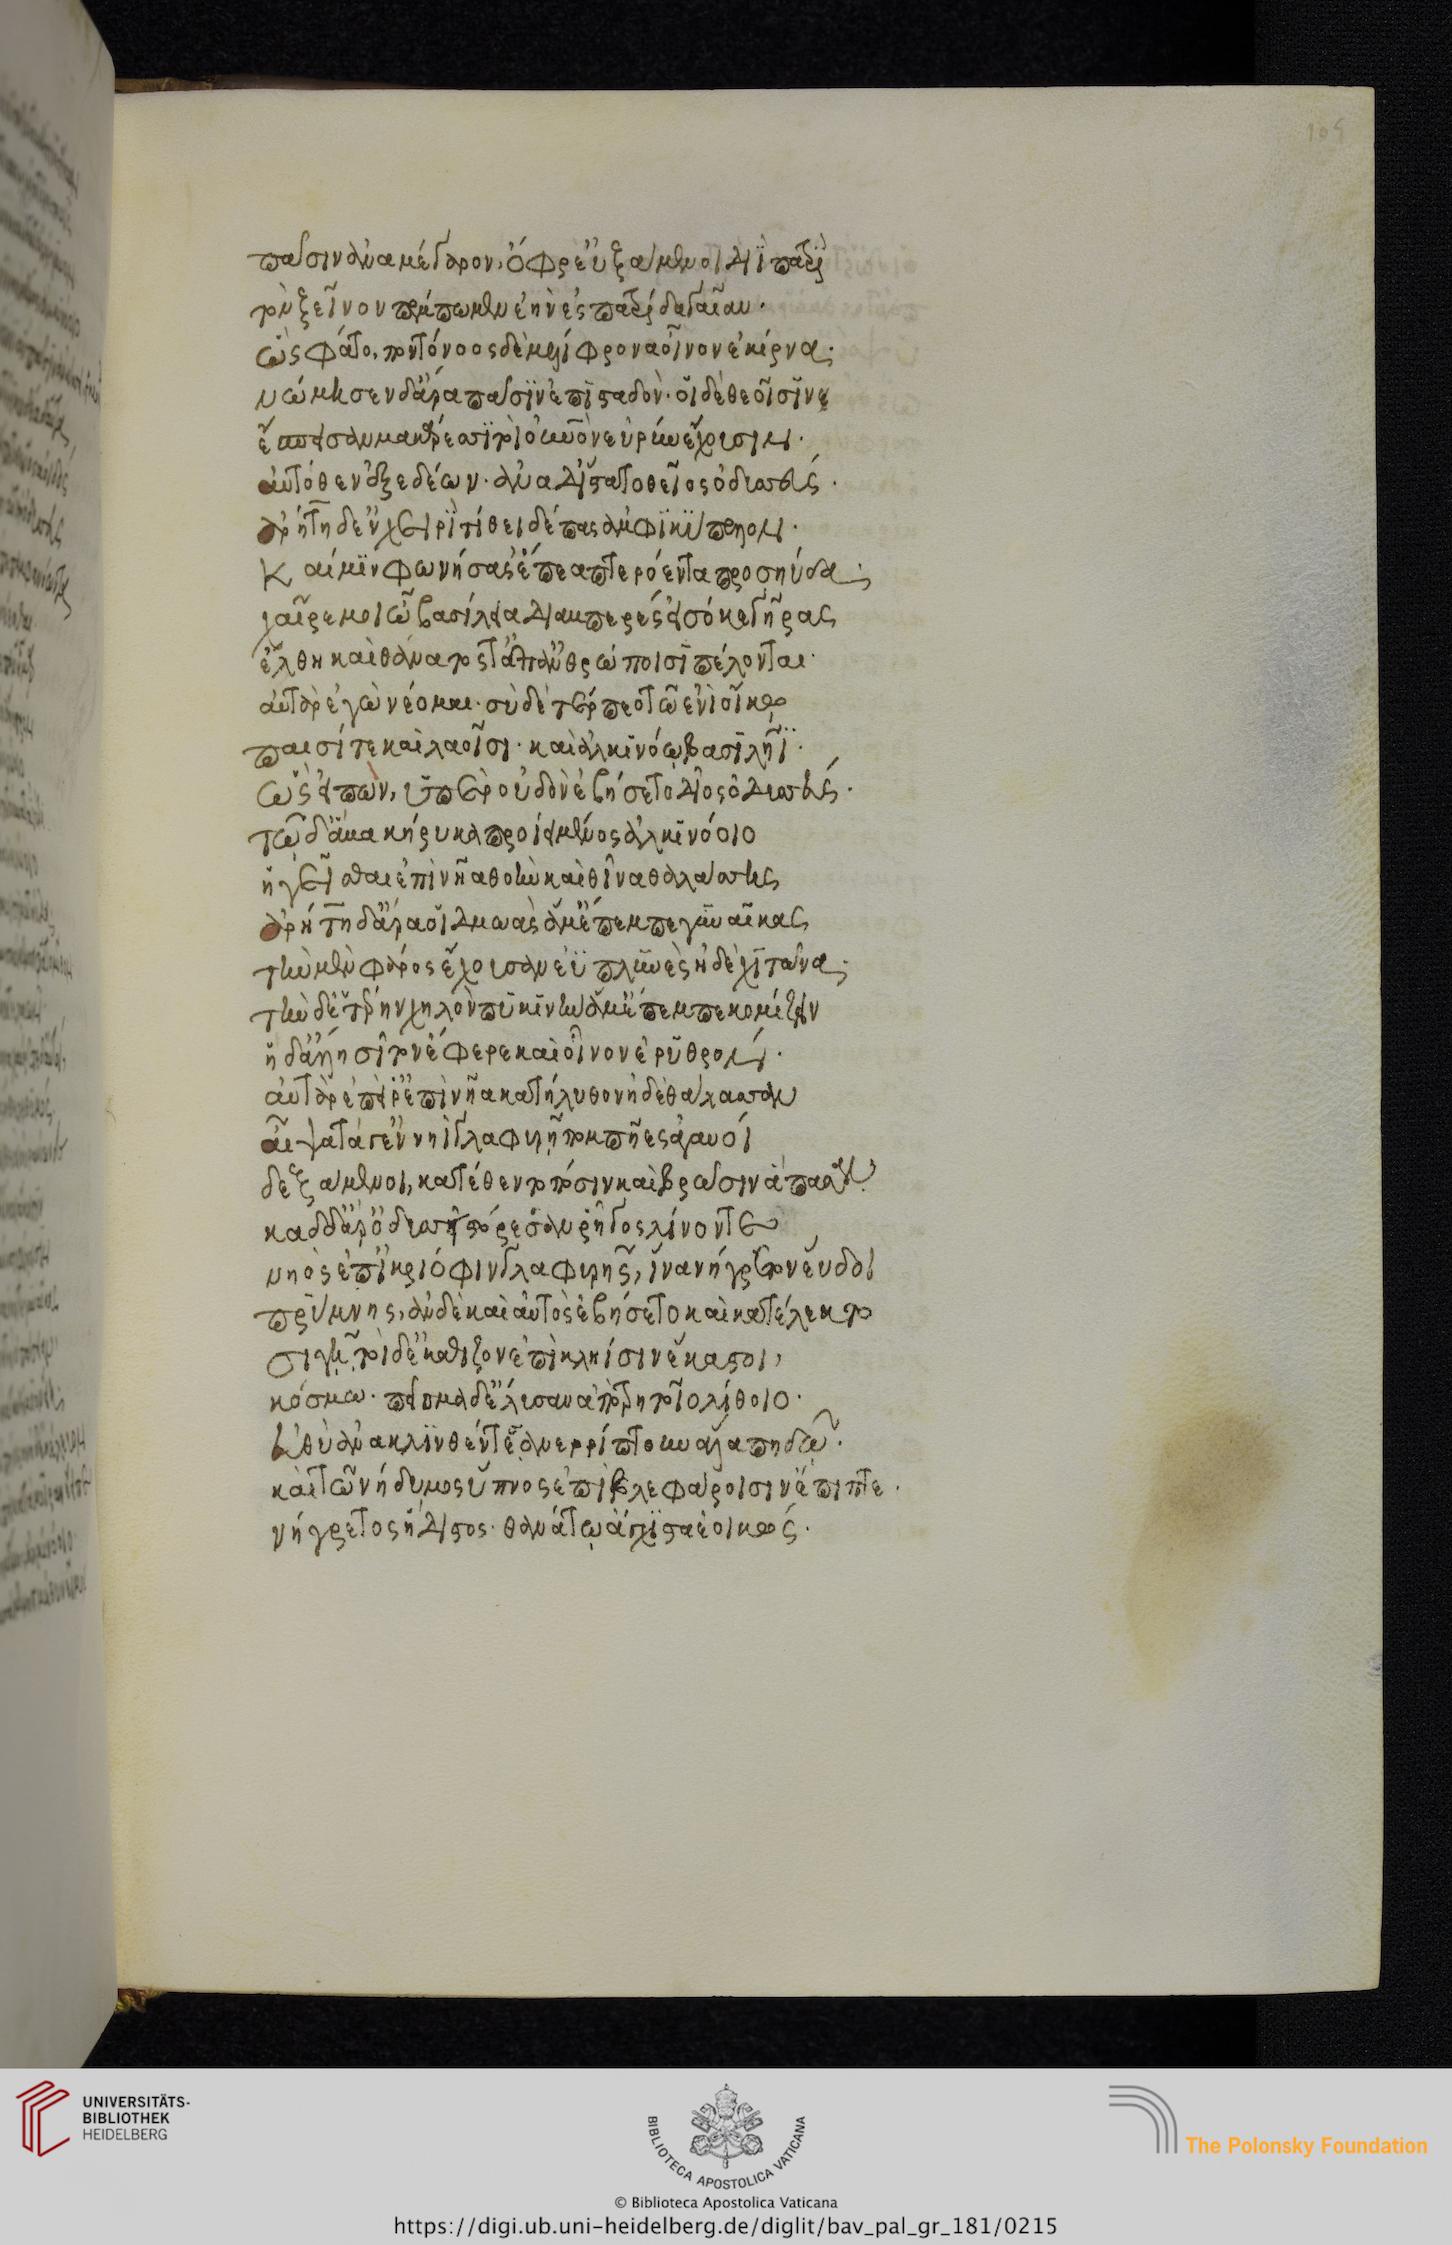 πᾶσιν ἀνὰ μέγαρον, ὄφρ' εὐξάμενοι Διῒ πατρὶ
τὸν ξεῖνον πέμπωμεν ἑὴν ἐς πατρίδα γαῖαν.
ὣς φάτο, ποντόνοος δὲ μελίφρονα οἶνον ἐκίρνα.
νώμησεν δ' ἄρα πᾶσιν ἐπισταδόν. οἱ δὲ θεοῖσιν
ἔσπεισαν μακάρεσσι τοὶ οὐρανὸν εὐρὺν ἔχουσιν.
αὐτόθεν ἐξ ἑδέων. ἀνὰ δ' ἵστατο θεῖος ὀδυσσεύς.
ἀρήτη δ' ἐν χειρὶ τίθει δέπας ἀμφικύπελλον.
Καί μιν φωνήσας ἔπεα πτερόεντα προσηύδα.
χαῖρέ μοι ὦ βασίλεια διαμπερὲς εἰσόκε γῆρας
ἔλθη καὶ θάνατος τά τ' ἐπ' ἀνθρώποισι πέλονται.
αὐτὰρ ἐγὼ νέομαι. σὺ δὲ τέρπεο τῶ ἐνὶ οἴκω
παισί τε καὶ λαοῖσι. καὶ ἀλκινόω βασιλῆϊ.
ὣς εἰπὼν, ὑπὲρ οὐδὸν ἐβήσετο δῖος ὀδυσσεύς.
τῶ δ' ἅμα κήρυκα προΐει μένος ἀλκινόοιο
ἡγεῖσθαι ἐπὶ νῆα θοὴν καὶ θῖνα θαλάσσης
ἀρήτη δ' ἄρα οἱ δμωὰς ἅμ' ἔπεμπε γυναῖκας
τὴν μὲν φᾶρος ἔχουσαν ἐϋπλυνὲς ἠδὲ χιτῶνα.
τὴν δ' ἑτέρην χηλὸν πυκινὴν ἅμ' ἔπεμπε κομίζειν
ἡ δ' ἄλλη σῖτόν τ' ἔφερε καὶ οἶνον ἐρυθρόν.
αὐτὰρ ἐπεί ῥ' ἐπὶ νῆα κατήλυθον ἠδὲ θάλασσαν
αἶψα τά γ' ἐν νηῒ γλαφυρῆ πομπῆες ἀγαυοί
δεξάμενοι, κατέθεντο πόσιν καὶ βρῶσιν ἅπασαν
καδδ' ἄρ' ὀδυσσῆϊ στόρεσαν ῥῆγός τε λίνον τε
νηὸς ἐπ' ἰκριόφιν γλαφυρῆς, ἵνα νήγρετον εὕδοι
πρύμνης, ἂν δὲ καὶ αὐτὸς ἐβήσετο καὶ κατέλεκτο
σιγῆ. τοὶ δὲ κάθιζον ἐπὶ κληῗσιν ἕκαστοι,
κόσμω. πεῖσμα δ' ἔλυσαν ἀπὸ τρητοῖο λίθοιο.
εὖθ' οἱ ἀνακλινθέντες ἀνερρίπτουν ἅλα πηδῶ.
καὶ τῶ νήδυμος ὕπνος ἐπὶ βλεφάροισιν ἔπιπτε.
νήγρετος ἥδιστος. θανάτω ἄγχιστα ἐοικώς.
UNIVERSITÄTS-
BIBLIOTHEK
HEIDELBERG
BIBLIOTECA APOSTOLICA VATICANA
© Biblioteca Apostolica Vaticana
The Polonsky Foundation
https://digi.ub.uni-heidelberg.de/diglit/bav_pal_gr_181/0215